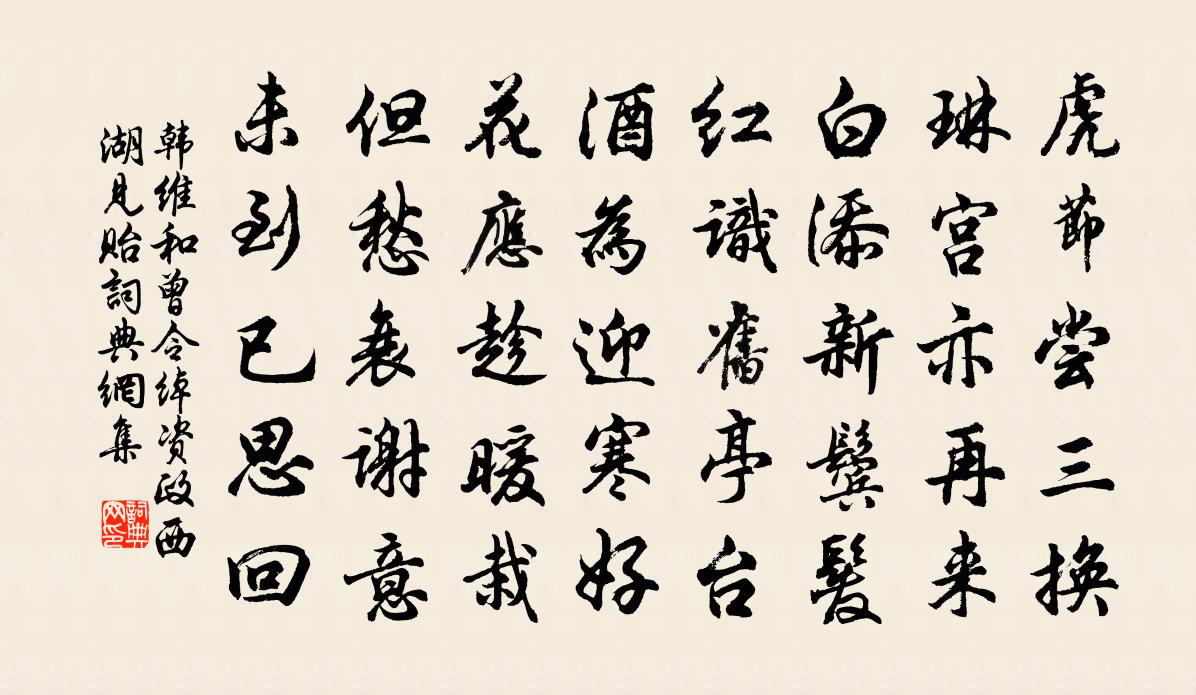 虎節尝三換
琳宫亦再来
白添新鬓髮
红識舊亭台
酒為迎寒好
花應趁暖栽
但愁衰谢意
未到已思回
韩维和曾令绰资政西
湖見贻詞典網集
詞典网印